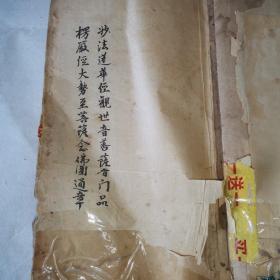 妙法蓮華经觀世音菩薩普门品
楞嚴经大勢至菩薩念佛圓通章
送